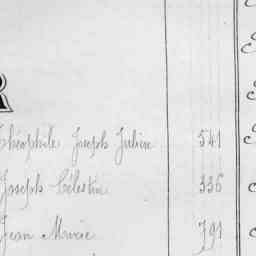 R
Théophile Joseph Julien 541
Joseph Célestin 336
Jean Marie 791